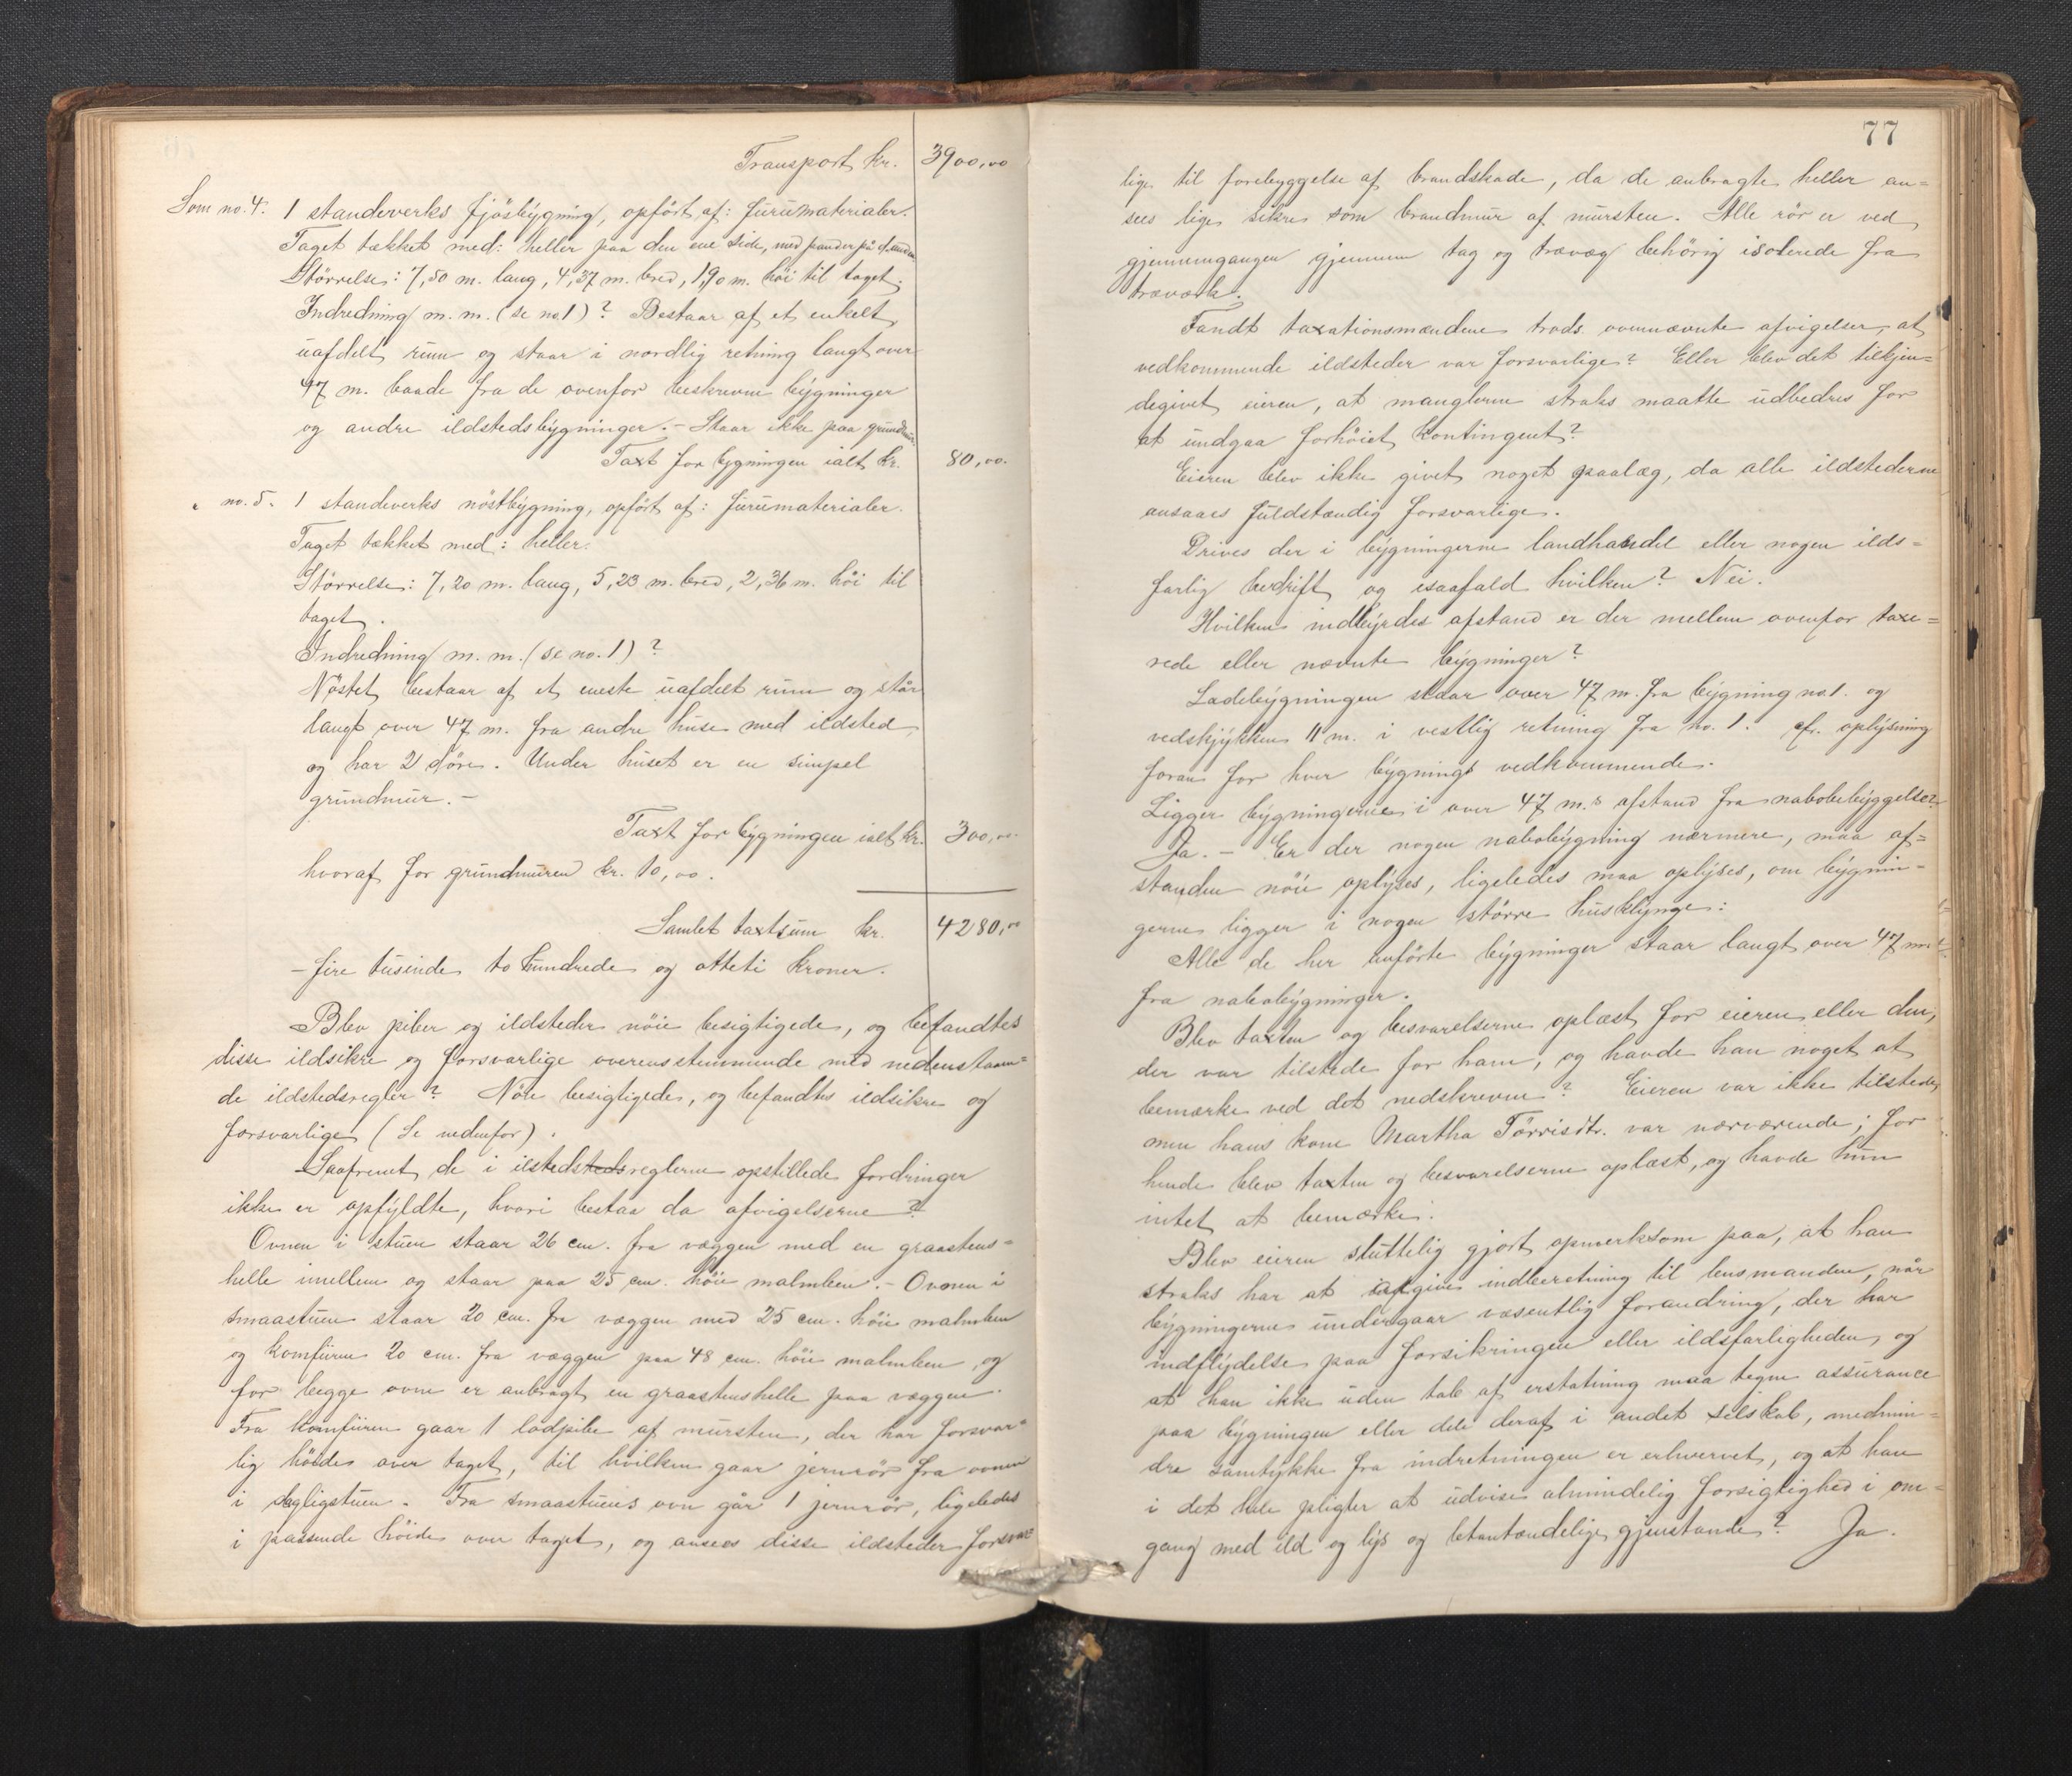 Transport kr. 3900,00
Som no. 4. 1 standeverks fjösbygning, opfört af: furumaterialer.
Taget tækket med: heller paa den ene side, med pander på d. anden
Störrelse: 7,50 m. lang, 4,37 m. bred, 1,90 m. höi til taget.
Indredning m. m. (se no 1)? Bestaar af et enkelt
uafdelt rum og staar i nordlig retning langt over
47 m. baade fra de ovenfor beskrevne bygninger
og andre ildstedsbygninger. – Staar ikke paa grundmur.
Taxt for bygningen ialt kr. 80,00.
" no. 5. 1 standeverks nöstbygning, opfört af: furumaterialer.
Taget tækket med: heller.
Störrelse: 7,20 m. lang, 5,23 m. bred, 2,36 m. höi til
taget.
Indredning m. m. (se no. 1)?
Nöstet bestaar af et eneste uafdelt rum og står
langt over 47 m. fra andre huse med ildsted
og har 2 döre. Under huset er en simpel
grundmur. –
Taxt for bygningen ialt kr. 300,00.
hvoraf for grundmuren kr. 10,00.
Samlet taxtsum kr. 4280,00
– fire tusinde to hundrede og otteti kroner.
Blev piber og ildsteder nöie besigtigede, og befandtes
disse ildsikre og forsvarlige overensstemmende med nedenstaaen=
de ildstedsregler? Nöie besigtigede, og befandtes ildsikre og
forsvarlige (Se nedenfor).
Saafremt de i ilstedstedsreglerne opstillede fordringer
ikke er opfyldte, hvori bestaa da afvigelserne?
Ovnen i stuen staar 26 cm. fra væggen med en graastens=
helle imellem og staar paa 25 cm. höie malmben. – Ovnen i
smaastuen staar 20 cm. fra væggen med 25 cm. höie malmben
og komfuren 20 cm. fra væggen paa 48 cm. höie malmben, og
for begge ovne er anbragt en graastenshelle paa væggen.
Fra komfuren gaar 1 lodpibe af mursten, der har forsvar=
lig höide over taget, til hvilken gaar jernrör fra ovnen
i dagligstuen. Fra smaastuens ovn går 1 jernrör, ligeledes
i passende höide over taget, og ansees disse ildsteder forsvar=
77
lige til forebyggelse af brandskade, da de anbragte heller an=
sees lige sikre som brandmur af mursten. Alle rör er ved
gjennemgangen gjennem tag og trævæg behörig isolerede fra
træværk.
Fandt taxationsmændene trods ovennævnte afvigelser, at
vedkommende ildsteder var forsvarlige? Eller blev det tilkjen=
degivet eieren, at manglerne straks maatte udbedres for
at undgaa forhöiet kontingent?
Eieren blev ikke givet noget paalæg, da alle ildstederne
ansaaes fuldstændig forsvarlige.
Drives der i bygningerne landhandel eller nogen ilds=
farlig bedrift og isaafald hvilken? Nei.
Hvilken indbyrdes afstand er der mellem ovenfor taxe=
rede eller nævnte bygninger?
Ladebygningen staar over 47 m. fra bygning no. 1. og
vedskjykken 11 m. i vestlig retning fra no. 1. cfr. oplysning
foran for hver bygnings vedkommende.
Ligger bygningerne i over 47 m.s afstand fra nabobebyggelse?
Ja. – Er der nogen nabobygning nærmere, maa af=
standen nöie oplyses, ligeledes maa oplyses, om bygnin=
gerne ligger i nogen större husklynge:
Alle de her anförte bygninger staar langt over 47 m
fra nabobygninger.
Blev taxten og besvarelserne oplæst for eieren eller den,
der var tilstede for ham, og havde han noget at
bemærke ved det nedskrevne? Eieren var ikke tilstede,
men hans kone Martha Törrisdtr. var nærværende; for
hende blev taxten og besvarelserne oplæst, og havde hun
intet at bemærke.
Blev eieren sluttelig gjort opmerksom paa, at han
straks har at afgive indberetning til lensmanden, når
bygningerne undergaar væsentlig forandring, der har
indflydelse paa forsikringen eller ildsfarligheden, og
at han ikke uden tab af erstatning maa tegne assurance
paa bygningen eller dele deraf i andet selskab, medmin=
dre samtykke fra indretningen er erhvervet, og at han
i det hele pligter at udvise almindelig forsigtighed i om=
gang med ild og lys og letantændelige gjenstande? Ja.